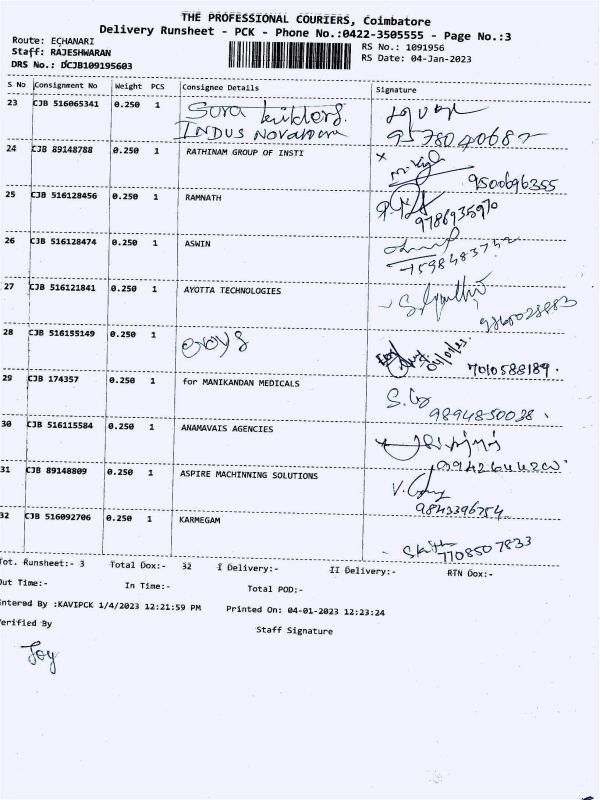 THE PROFESSIONAL COURIERS, Coimbatore
Delivery Runsheet - PCK - Phone No.:0422-3505555 - Page No.:3
Route: ECHANARI
RS No.: 1091956
Staff: RAJESHWARAN
RS Date: 04-Jan-2023
DRS No.: DCJB109195603
S No Consignment No Weight PCS Consignee Details Signature
23 CJB 516065341 0.250 1 Sura builders.
INDUS NOVATEUR
24 CJB 89148788 0.250 1 RATHINAM GROUP OF INSTI
9500696355
25 CJB 516128456 0.250 1 RAMNATH
9786935970
26 CJB 516128474 0.250 1 ASWIN
27 CJB 516121841 0.250 1 AYOTTA TECHNOLOGIES
28 CJB 516155149 0.250 1
04/01/23
7010588189.
29 CJB 174357 0.250 1 for MANIKANDAN MEDICALS
9894850028.
30 CJB 516115584 0.250 1 ANAMAVAIS AGENCIES
31 CJB 89148809 0.250 1 ASPIRE MACHINNING SOLUTIONS
9843396754
32 CJB 516092706 0.250 1 KARMEGAM
7708507833
Tot. Runsheet:- 3 Total Dox:- 32 I Delivery:- II Delivery:- RTN Dox:-
Out Time:- In Time:- Total POD:-
Entered By :KAVIPCK 1/4/2023 12:21:59 PM Printed On: 04-01-2023 12:23:24
Verified By Staff Signature
Joy